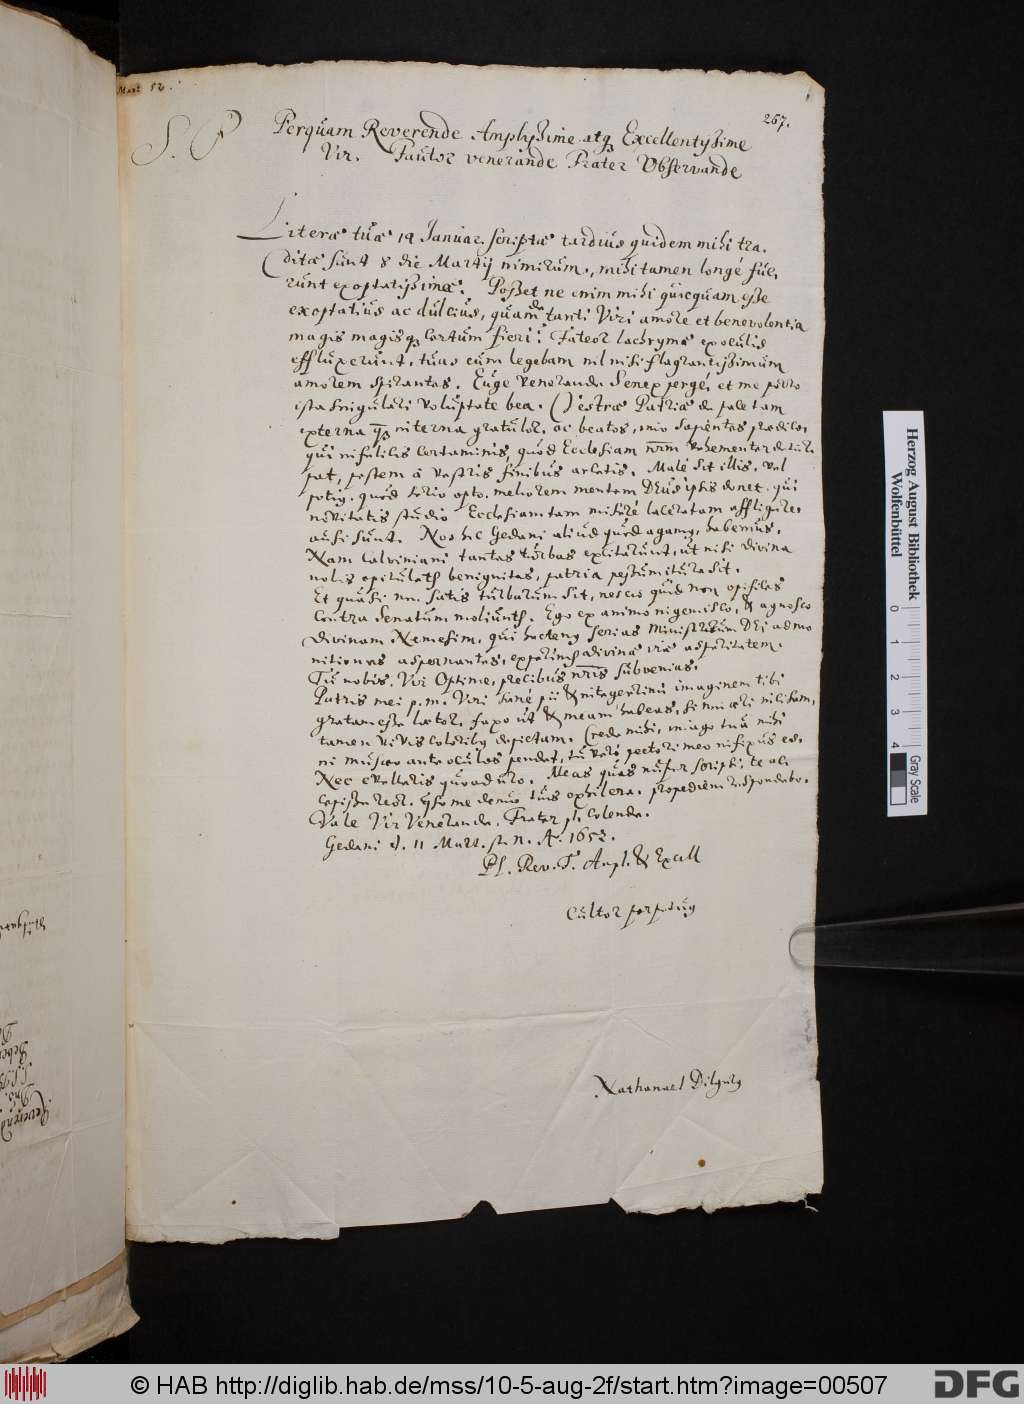 Mart 52.
267.
S. P
Perquam Reverende Amplissime atq Excellentissime
Vir. Fautor venerande Frater Observande
Literae tuae 19 Januar. scriptae tardius quidem mihi tra-
ditae sunt 8 die Martij nimirum, mihi tamen longè fue-
runt exoptatissimae. Posset ne enim mihi quicquam esse
exoptatius ac dulcius, quam de tanti Viri amore et benevolentia
magis magisq certum fieri? Fateor lachrymae ex oculis
effluxerunt, tuas cum legebam nil nisi flagrantissimum
amorem spirantes. Euge Venerande Senex perge, et me porro
ista singulari voluptate bea. Vestrae Patriae de pace tam
externa interna gratulor, ac beatos, imo sapientes praedico,
qui certaminis, quod Ecclesiam vehementer
pestem à vestris finibus arcetis. Malè sit illis, vel
potiq. quod serio opto, meliorem mentem DEus ipsis donet, qui
novitatis studio Ecclesiam tam miserè laceratam affligere
ausi sunt. Nos hic Gedani aliud quod agamq, habemus,
Nam Calviniani tantas turbas excitarunt, ut nisi divina
nobis benignitas, patria sit.
Et quasi non satis turbarum sit, nescio quis non opifices
contra Senatum Ego ex animo ingemisco, & agnosco
divinam Nemesim, qui hactenq serias Ministrorum DEi admo-
nitiones aspernantes, divinae irae asperitatem.
Tu nobis, Vir Optime, precibus subvenias.
Patris mei p.m. Viri sanè pii & imaginem tibi
gratam esse laetor, faxo ut & meam habeas, si non aeri incisam,
tamen vivis coloribq depictam. Crede mihi, imago tua mihi
in musaeo ante oculos pendet, tu verò pectori meo infixus es.
Nec evelleris quoad uro. Meas quas nuper scripsi, te ac-
cepisse me denuò tuis exhilera. propediem respondebo.
Vale Vir Venerande, Frater pl. colende.
Gedani d. 11 Mart. st. n. A. 1652.
Pl. Rev. T. Ampl. & Excell
Cultor perpetuq
Nathanael Dilgerq
Herzog August Bibliothek
Wolfenbüttel
0 1 2 3 4
Gray Scale
© HAB http://diglib.hab.de/mss/10-5-aug-2f/start.htm?image=00507
DFG